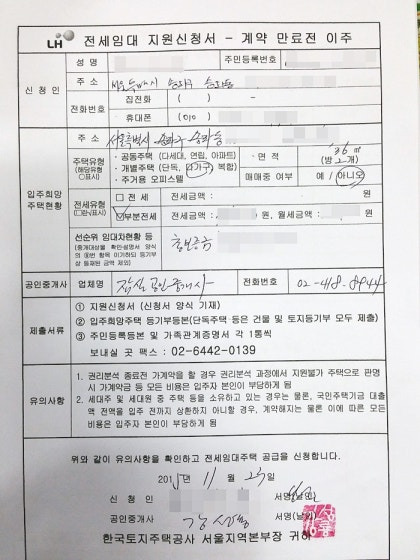 LH 전세임대 지원신청서 - 계약 만료전 이주
신 청 인
성 명
주민등록번호
주 소 서울특별시 송파구
전화번호
집전화 ( ) -
휴대폰 (010
입주희망
주택현황
주 소 서울특별시 송파구
주택유형
(해당유형
○표시)
· 공동주택 (다세대, 연립, 아파트)
· 개별주택 (단독, 다가구, 복합)
· 주거용 오피스텔
· 면 적
36 ㎡
(방 2 개)
매매중 여부
예 / 아니오
전세유형
□ 전 세 전세금액 : 원
부분전세 전세금액 : 원, 월세금액 : 원
선순위 임대차현황 등
공인중개사
업체명
잠실 공인중개사
전화번호
02-418-8944
제출서류
① 지원신청서 (신청서 양식 기재)
② 입주희망주택 등기부등본(단독주택 등은 건물 및 토지등기부 모두 제출)
③ 주민등록등본 및 가족관계증명서 각 1통씩
보내실 곳 팩스 : 02-6442-0139
유의사항
1. 권리분석 종료전 가계약을 할 경우 권리분석 과정에서 지원불가 주택으로 판명
시 가계약금 등 모든 비용은 입주자 본인이 부담하게 됨
2. 세대주 및 세대원 중 주택 등을 소유하고 있는 경우는 물론, 국민주택기금 대출
액 전액을 입주 전까지 상환하지 아니할 경우, 계약해지는 물론 이에 따른 모든
비용은 입주자 본인이 부담하게 됨
위와 같이 유의사항을 확인하고 전세임대주택 공급을 신청합니다.
2015년 11 월 23일
신 청 인 서명(날인)
공인중개사 서명(날인)
한국토지주택공사 서울지역본부장 귀하